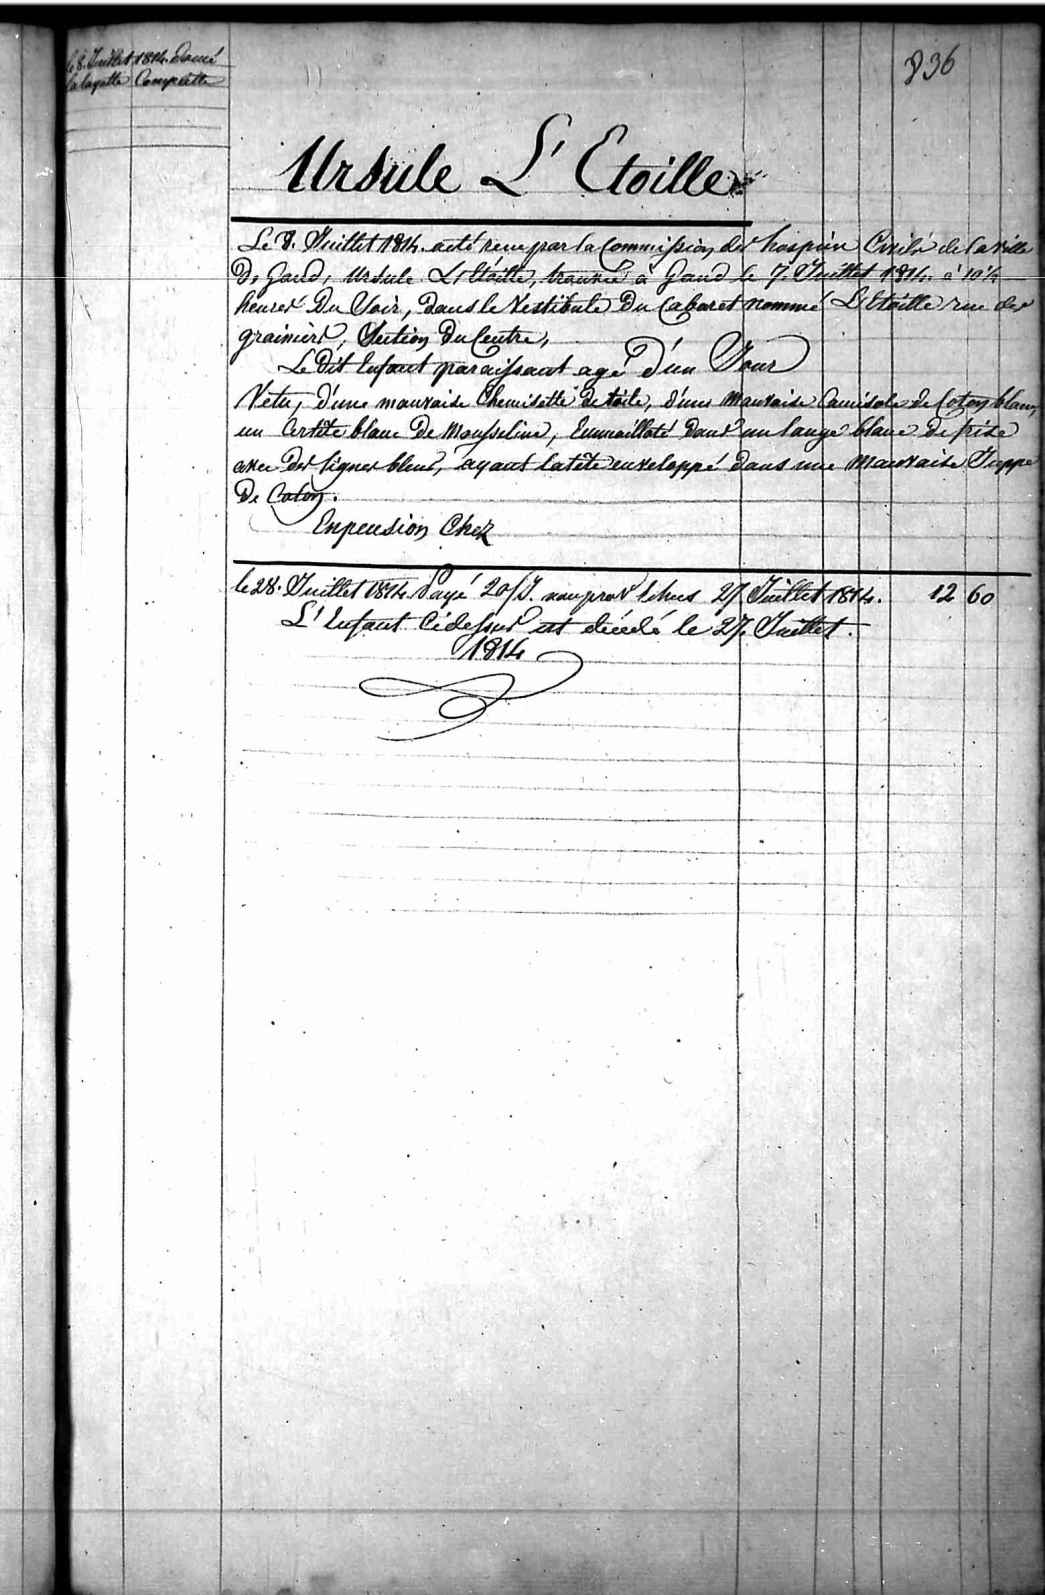 le 8. Juillet 1814. Donné
la layette Complette
836
Ursule L'Etoille
Le 8. Juillet 1814. a été reçue par la Commission des hospices Civils de la Ville
De Gand, Ursule L'Etoille, trouvée à Gand le 7. Juillet 1814. à 10 1/4
heures Du Soir, Dans le Vestibule Du Cabaret nommé L'Etoille rue des
grainiers, Section Du Centre,
Le Dit Enfant paraissant agé D'un Jour
Vetu, D'une mauvaise Chemisette De toile, D'une Mauvaise Camisole de Coton blanc
un blanc De Mousseline, Emmailloté Dans un lange blanc De frise
avec Des lignes bleus, ayant la tête enveloppé Dans une Mauvaise Juppe
De Coton.
En pension Chez
le 28. Juillet 1814. Payé 20/J. échus 27 Juillet 1814. 12 60
L'Enfant Cidessus est décédé le 27. Juillet.
1814